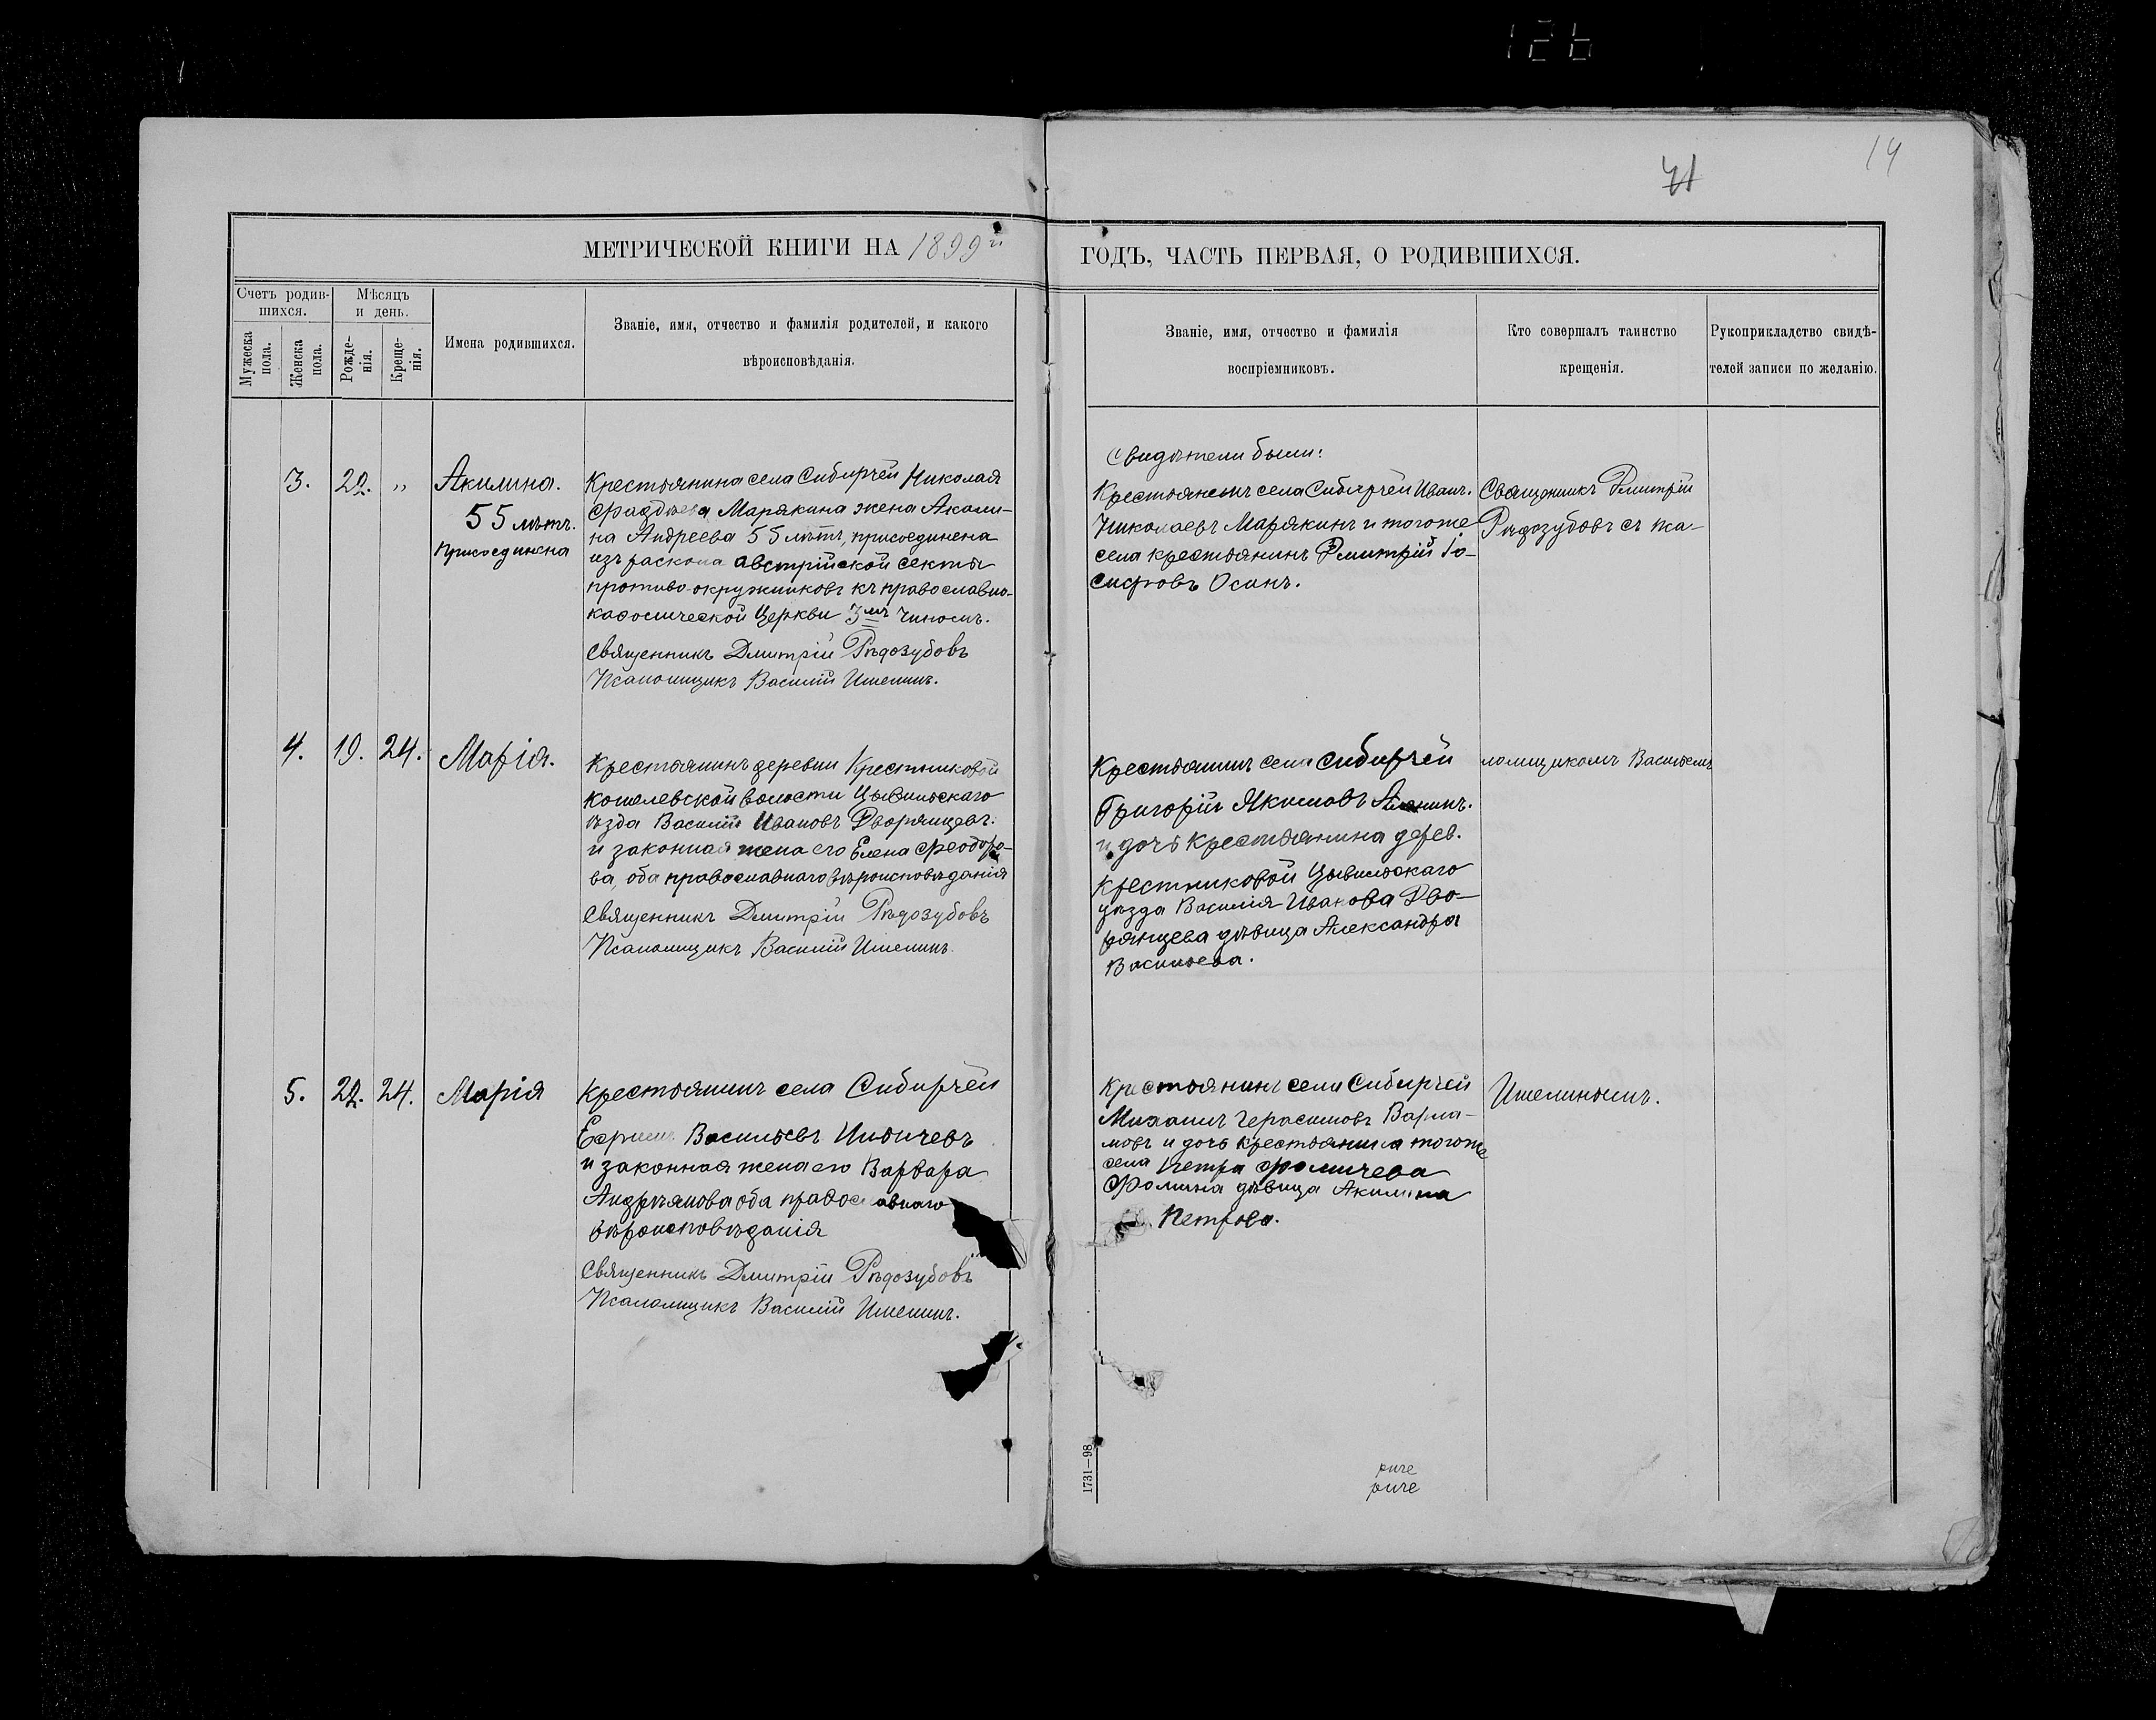 126
14
МЕТРИЧЕСКОЙ КНИГИ НА 1899й
ГОДЪ, ЧАСТЬ ПЕРВАЯ, О РОДИВШИХСЯ.
Счетъ родив-
шихся.
Мужеска
пола.
Женска
пола.
Мѣсяцъ
и день.
Рожде-
нія.
Креще-
нія.
Имена родившихся.
Званіе, имя, отчество и фамилія родителей, и какого
вѣроисповѣданія.
Званіе, имя, отчество и фамилія
воспріемниковъ.
Кто совершалъ таинство
крещенія.
Рукоприкладство свидѣ-
телей записи по желанію.
3.
22.
"
Акилина.
55 лѣтъ.
присоединена
Крестьянина села Сибирчей Николая
Фаддѣева Марякина жена Акили-
на Андреева 55 лѣтъ, присоединена
изъ раскола австрійской секты
противо-окружниковъ къ православно-
каѳолической Церкви 3мъ чиномъ.
Священникъ Дмитрій Рѣдозубовъ
Псаломщикъ Василій Ишелинъ.
Свидѣтели были:
Крестьянинъ села Сибирчей Иванъ
Николаевъ Марякинъ и тогоже
села крестьянинъ Дмитрій Іо-
сифовъ Осинъ.
Священникъ Дмитрій
Рѣдозубовъ съ пса-
4.
19.
24.
Марія.
Крестьянинъ деревни Крестниковой
Кошелевской волости Цывильскаго
ѣзда Василій Ивановъ Дворянцевъ
и законная жена его Елена Ѳеодоро-
ва, оба православнаго вѣроисповѣданія
Священникъ Дмитрій Рѣдозубовъ
Псаломщикъ Василій Ишелинъ.
Крестьянинъ села Сибирчей
Григорій Якимовъ
и дочь крестьянина дерев.
Крестниковой Цывильскаго
уѣзда Василія Иванова Дво-
рянцева дѣвица Александра
Васильева.
ломщикомъ Василіемъ
5.
22.
24.
Марія
Крестьянинъ села Сибирчей
Ефимъ Васильевъ
и законная жена его Варвара
Андреянова оба православнаго
вѣроисповѣданія
Священникъ Дмитрій Рѣдозубовъ
Псаломщикъ Василій Ишелинъ.
Крестьянинъ села Сибирчей
Михаилъ Герасимовъ Варла-
мовъ и дочь крестьянина тогоже
села Петра Фомичева
Фомина дѣвица Акилина
Петрова.
Ишелинымъ.
1731—98